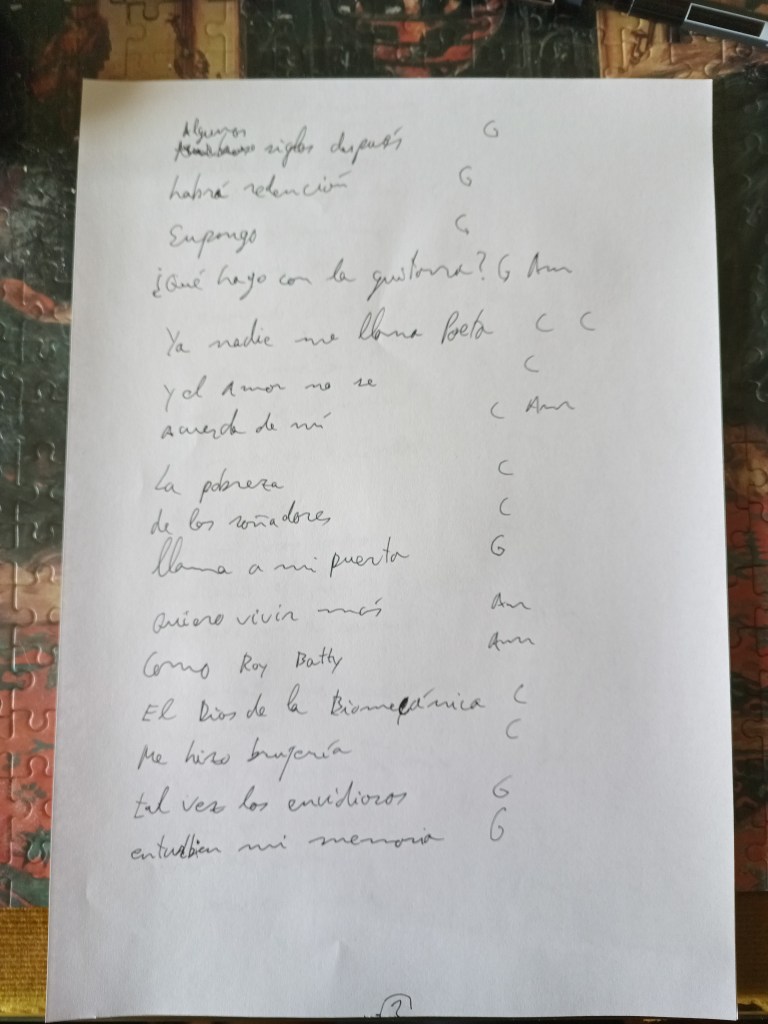 Algunos
siglos después G
habrá redención G
Supongo G
¿Qué hago con la guitarra? G Am
Ya nadie me llama Poeta C C
y el Amor no se C
acuerda de mí C Am
La pobreza C
de los soñadores C
llama a mi puerta G
quiero vivir más Am
Como Roy Batty Am
El Dios de la Biomecánica C
Me hizo brujería C
tal vez los envidiosos G
enturbien mi memoria G
2